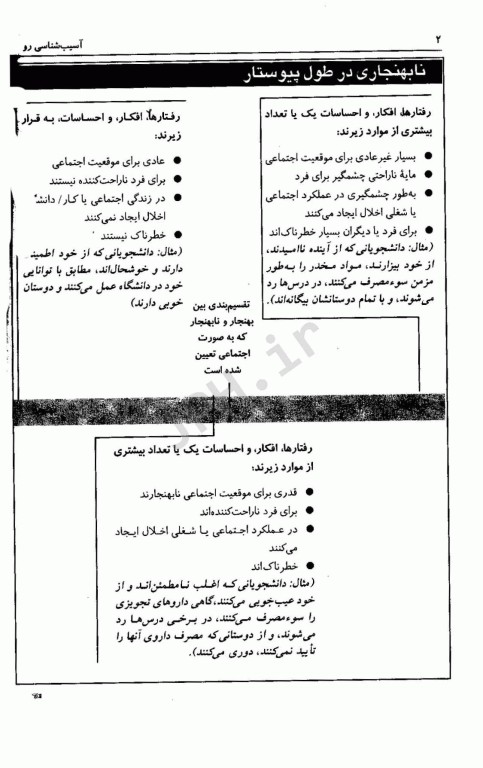 ۲
آسیب‌شناسی رو
نابهنجاری در طول پیوستار
رفتارها، افکار، و احساسات یک یا تعداد
بیشتری از موارد زیرند:
● بسیار غیرعادی برای موقعیت اجتماعی
● مایهٔ ناراحتی چشمگیر برای فرد
● به‌طور چشمگیری در عملکرد اجتماعی
یا شغلی اخلال ایجاد می‌کنند
● برای فرد یا دیگران بسیار خطرناک‌اند
(مثال: دانشجویانی که از آینده ناامیدند،
از خود بیزارند، مواد مخدر را به‌طور
مزمن سوءمصرف می‌کنند، در درس‌ها رد
می‌شوند، و با تمام دوستانشان بیگانه‌اند).
رفتارها، افکار، و احساسات، به قرار
زیرند:
● عادی برای موقعیت اجتماعی
● برای فرد ناراحت‌کننده نیستند
● در زندگی اجتماعی یا کار/ دانش
اخلال ایجاد نمی‌کنند
● خطرناک نیستند
(مثال: دانشجویانی که از خود اطمینا
دارند و خوشحال‌اند، مطابق با توانایی
خود در دانشگاه عمل می‌کنند و دوستان
خوبی دارند)
تقسیم‌بندی بین
بهنجار و نابهنجار
که به صورت
اجتماعی تعیین
شده است
رفتارها، افکار، و احساسات یک یا تعداد بیشتری
از موارد زیرند:
● قدری برای موقعیت اجتماعی نابهنجارند
● برای فرد ناراحت‌کننده‌اند
● در عملکرد اجتماعی یا شغلی اخلال ایجاد
می‌کنند
● خطرناک‌اند
(مثال: دانشجویانی که اغلب نامطمئن‌اند و از
خود عیب‌جویی می‌کنند، گاهی داروهای تجویزی
را سوءمصرف می‌کنند، در برخی درس‌ها رد
می‌شوند، و از دوستانی که مصرف داروی آنها را
تأیید نمی‌کنند، دوری می‌کنند).